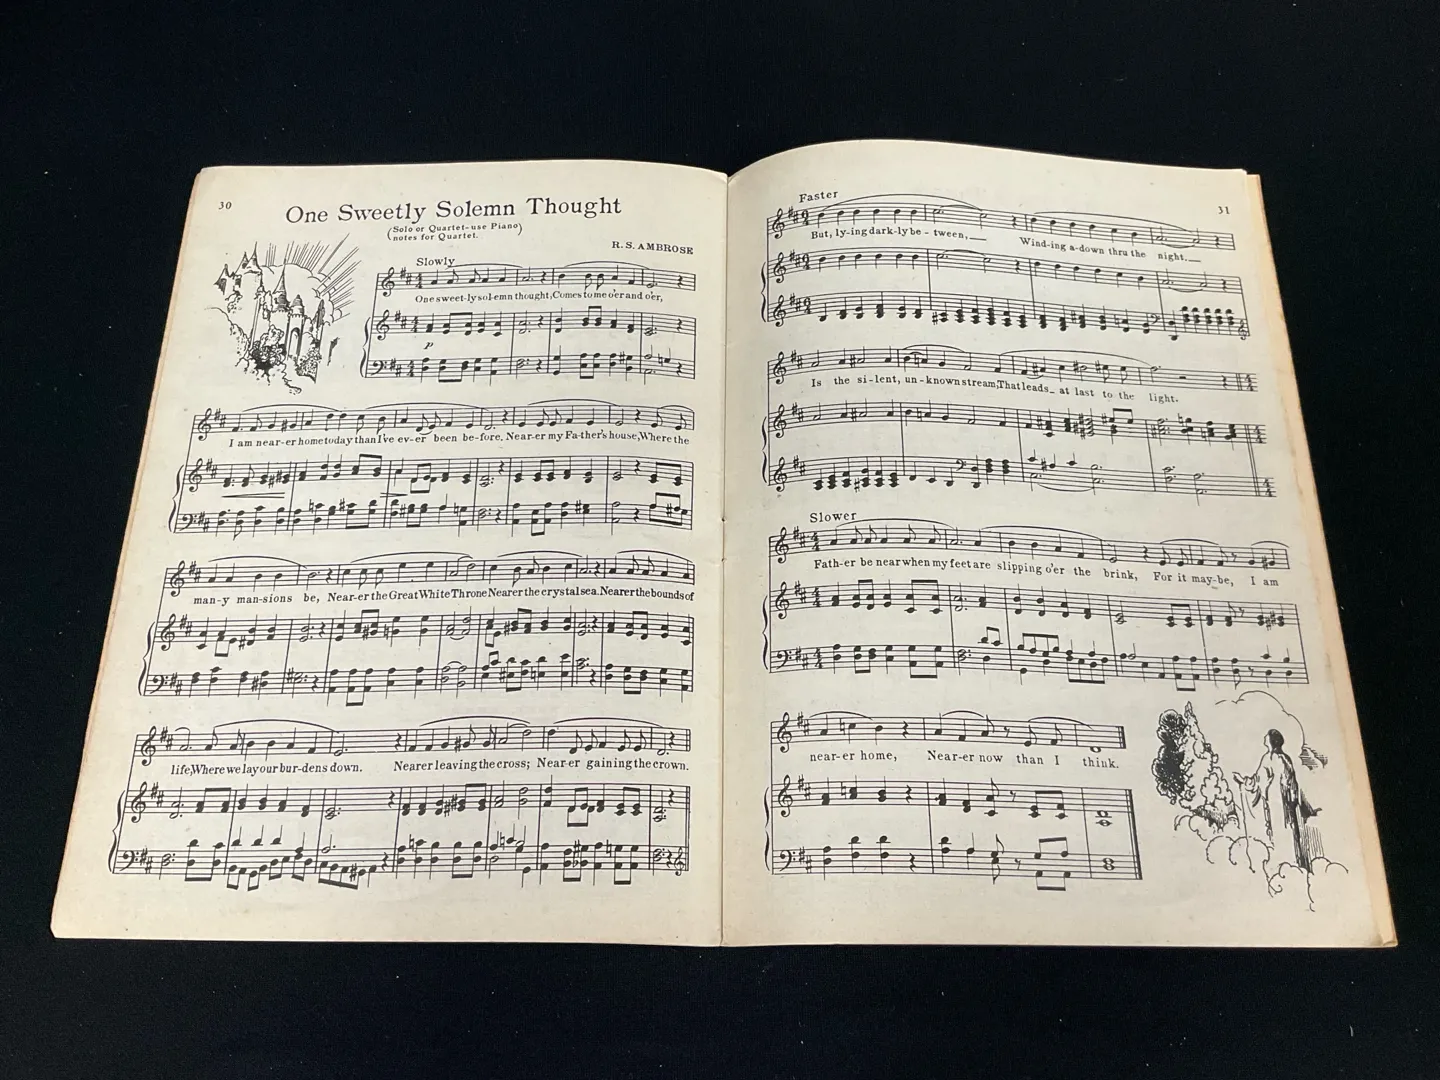 30
One Sweetly Solemn Thought
(Solo or Quartet-use Piano
notes for Quartet.)
R. S. AMBROSE
Slowly
One sweet-ly sol-emn thought, Comes to me o'er and o'er,
p
I am near-er home today than I've ev-er been be-fore. Near-er my Fa-ther's house, Where the
man-y man-sions be, Near-er the Great White Throne Nearer the crystal sea. Nearer the bounds of
life, Where we lay our bur-dens down. Nearer leaving the cross; Near-er gaining the crown.
31
Faster
But, ly-ing dark-ly be-tween, Wind-ing a-down thru the night.
Is the si-lent, un-known stream, That leads at last to the light.
Slower
Fath-er be near when my feet are slipping o'er the brink, For it may-be, I am
near-er home, Near-er now than I think.